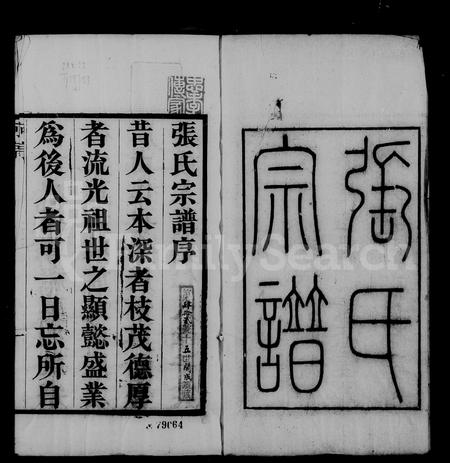 張氏
宗譜
張氏宗譜序
昔人云本深者枝茂德厚
者流光祖世之顯懿盛業
為後人者可一日忘所自
79064
FamilySearch